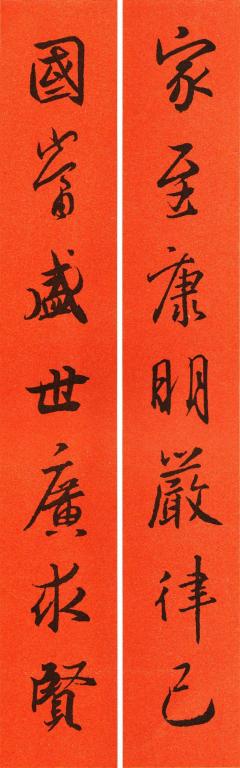 家至康明嚴律己
國當盛世廣求賢